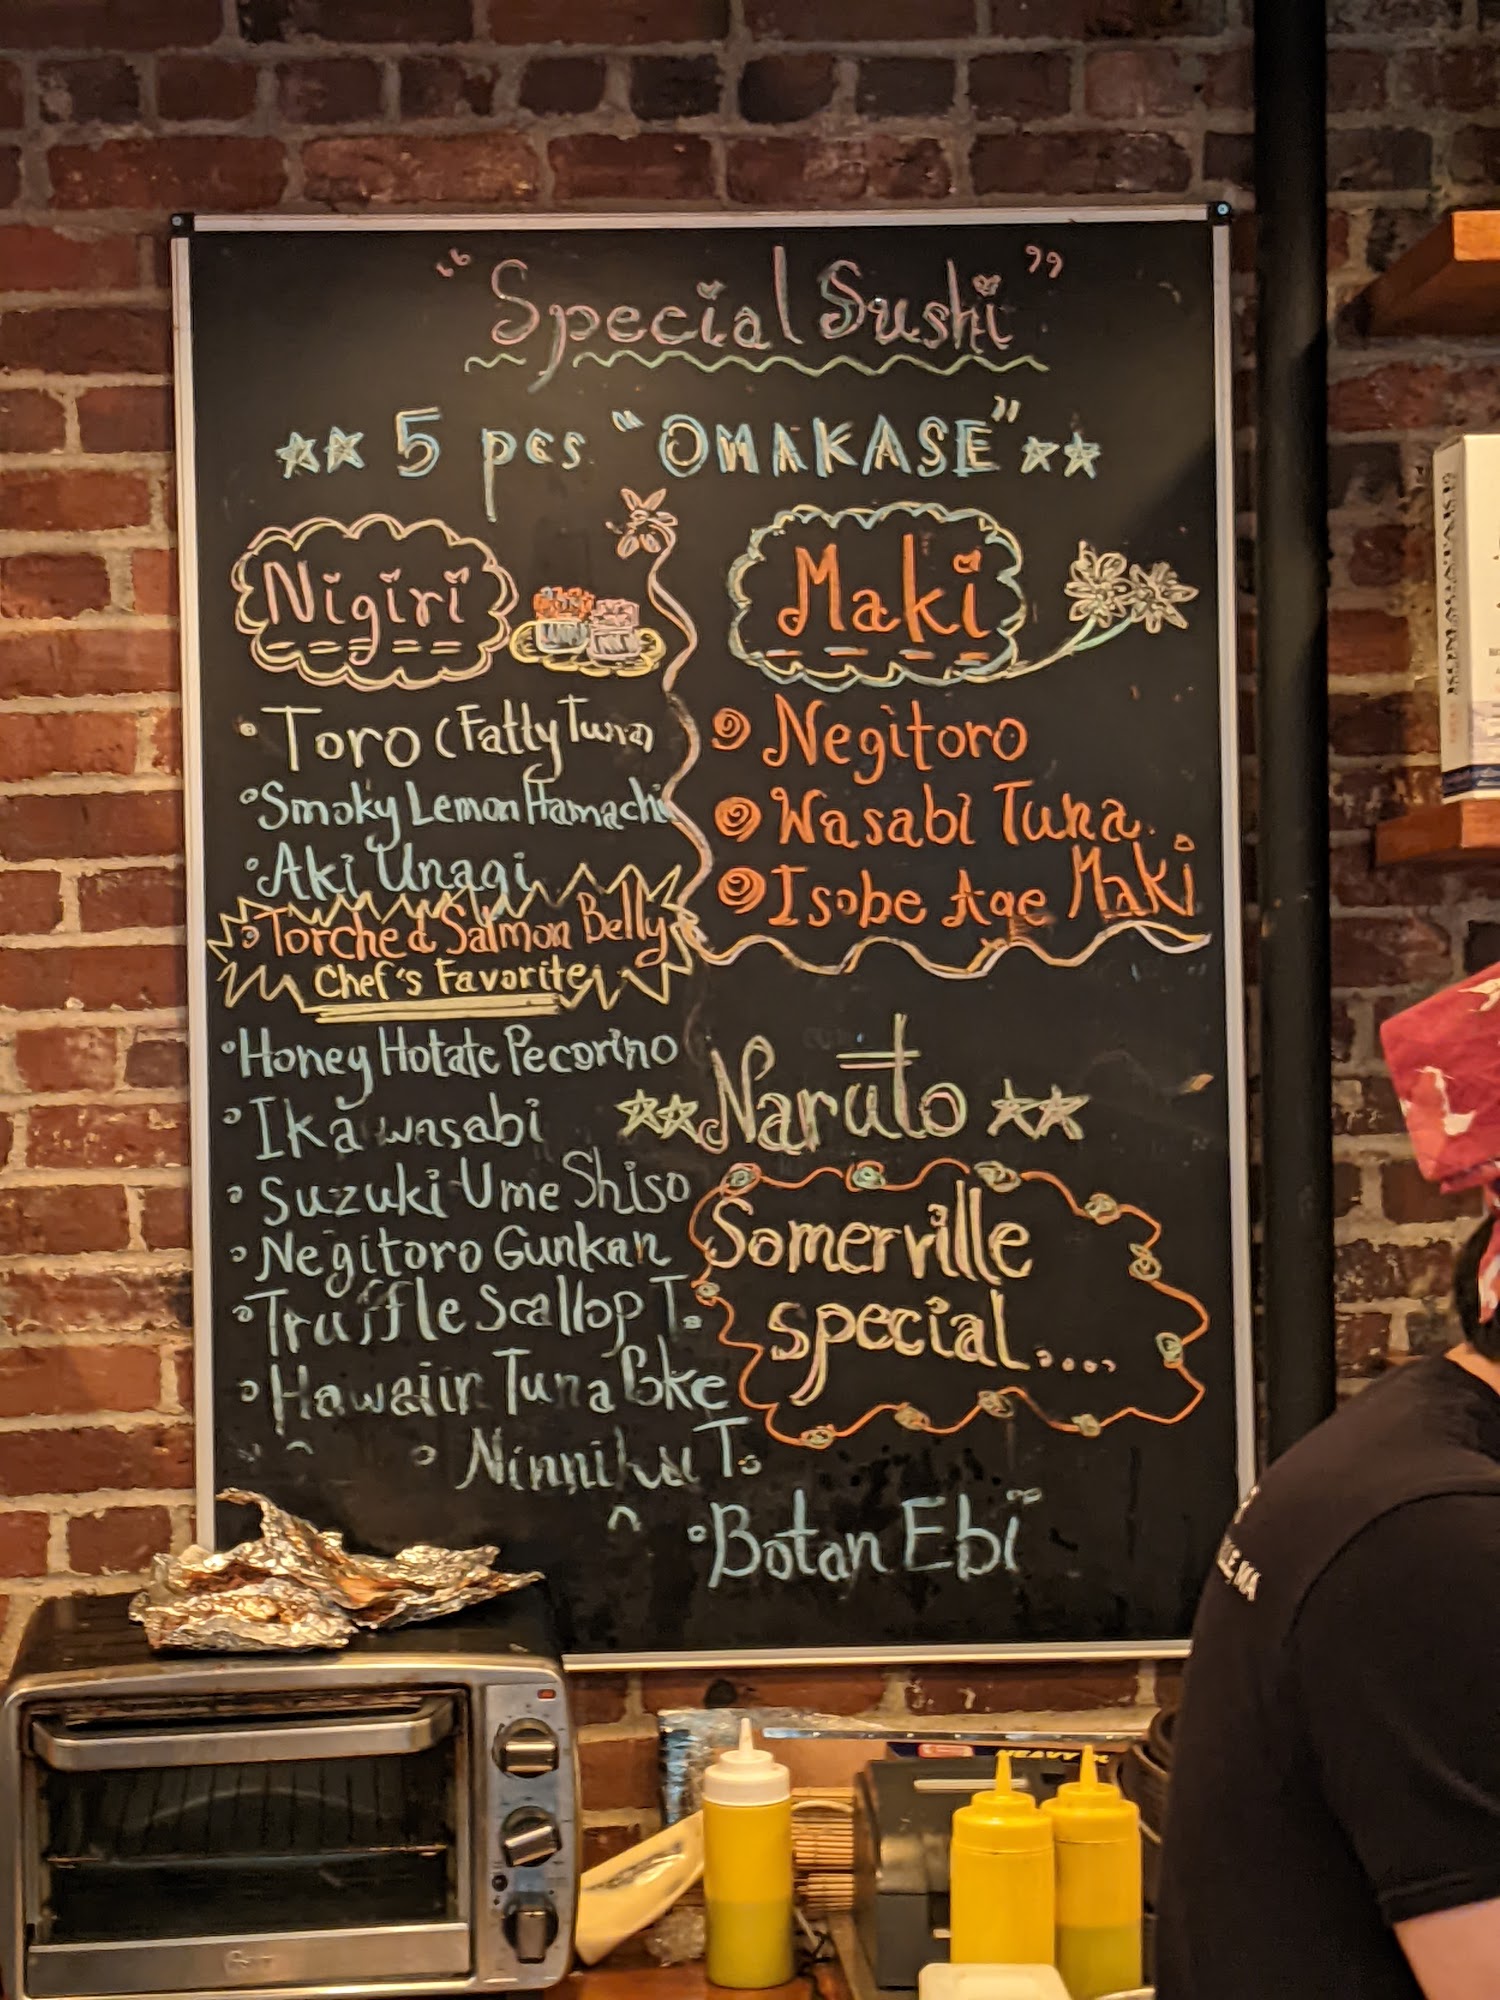 "Special Sushi"
5 pcs "OMAKASE"
Nigiri
Toro (Fatty Tuna)
Smoky Lemon Hamachi
Aki Unagi
Torched Salmon Belly
Chef's Favorite
Honey Hotate Pecorino
Ika wasabi
Suzuki Ume Shiso
Negitoro Gunkan
Truffle Scallop T.
Hawaiin Tuna Poke
Ninniku T.
Botan Ebi
Maki
Negitoro
Wasabi Tuna
Isobe Age Maki
Naruto
Somerville
special....
HEAVY